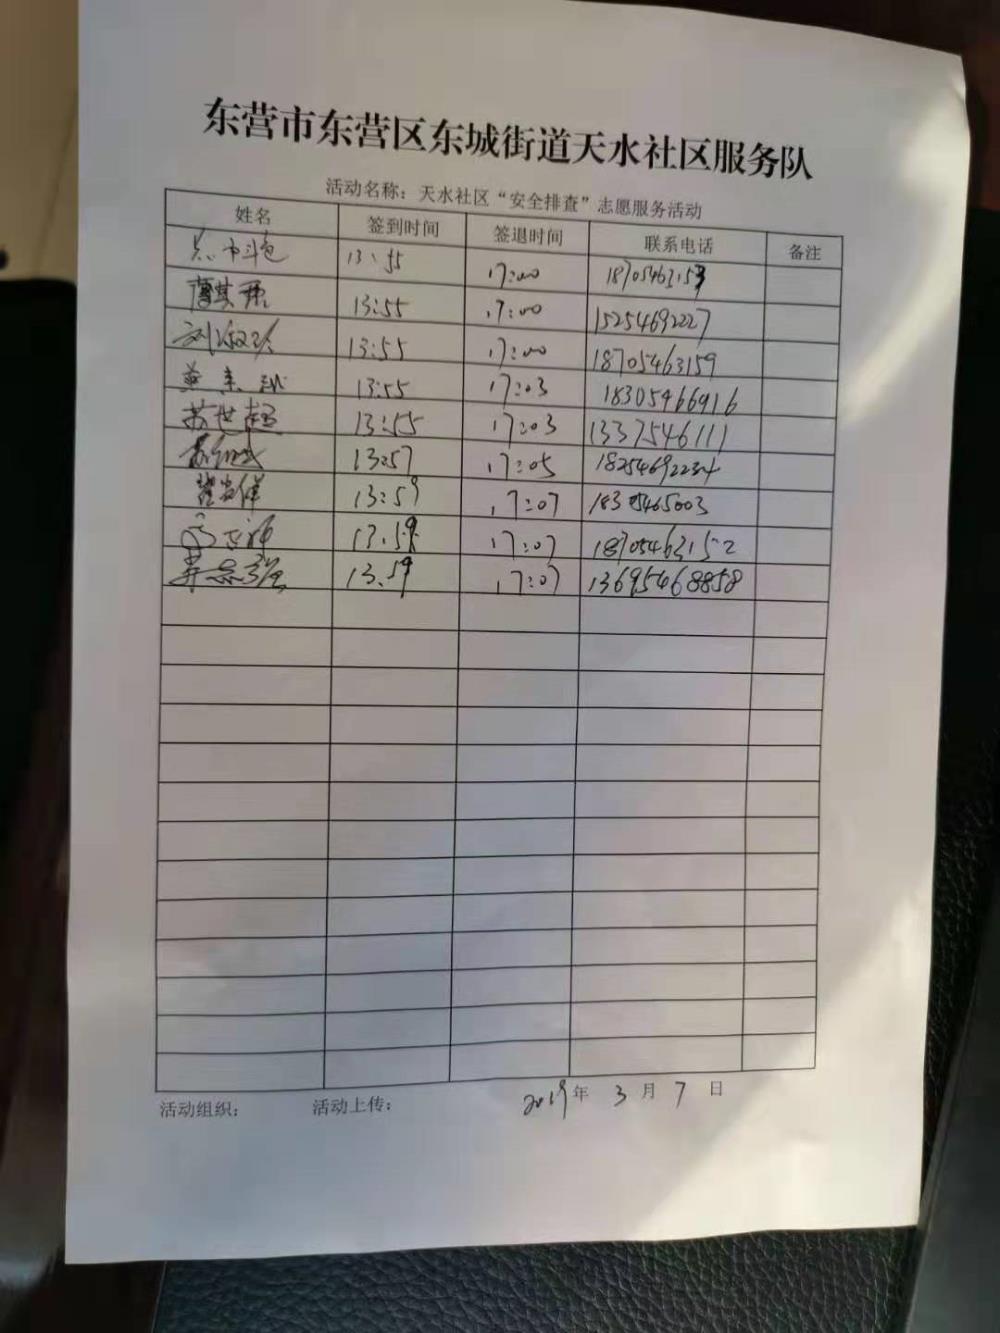 东营市东营区东城街道天水社区服务队
活动名称：天水社区“安全排查”志愿服务活动
姓名 签到时间 签退时间 联系电话 备注
13:55 17:00
13:55 17:00 15254692227
刘淑珍 13:55 17:00 18705463159
13:55 17:03 18305466916
苏世超 13:55 17:03 1337546111
13:57 17:05 18254692234
13:59 17:07 18305465003
13:59 17:07 18705463152
13:59 17:07 13695468858
活动组织： 活动上传： 2019年 3月 7日